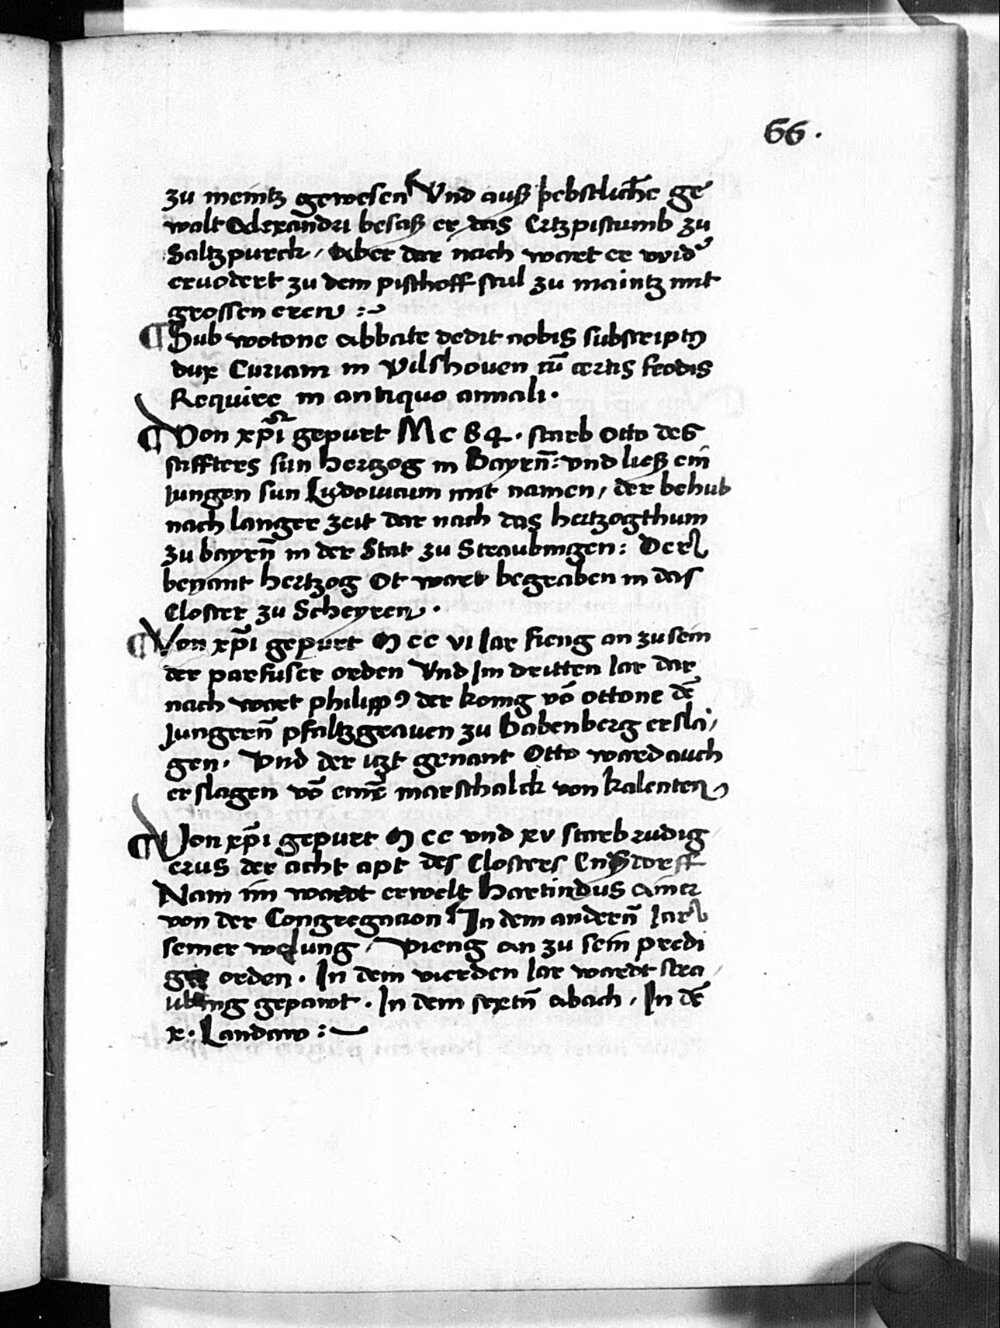 66.
zu meintz gewesen Vnd auß pebstlich̄e ge
walt Alexandri besaß er das Ertzpistumb zu
Saltzpurck / Aber dar nach wart er wid'
eruodert zu dem pischoff stul zu maintz mit
grossen eren :~
¶ Sub wotone abbate dedit nobis subscriptꝰ
dux Curiam in Vilshouen cū certis feodis
Require in antiquo annali.
¶ Von xp̄i gepurt M c 84. starb Otto des
stiffters sun hertzog in Bayrn̄: vnd ließ ein
jungen sun Ludowicum mit namen / der behub
nach langer zeit dar nach das hertzogthum
zu bayrn̄ in der Stat zu Straubingen: Der
benant hertzog Ot wart begraben in das
Closter zu Scheyren.
¶ Von xp̄i gepurt M cc vi Iar fieng an zu sein
der parfuser orden Vnd Im dritten Iar dar
nach wart philippꝰ der konig vō ottone dē
Jungern̄ pfaltzgrauen zu Babenberg ersla/
gen. Vnd der itzt genant Otto ward auch
erslagen vō einē marschalck von kalenten
¶ Von xp̄i gepurt M cc vnd xv starb rudig
erus der acht apt des Closters Ensdorff
Nam im wardt erwelt Hartindus ainer
von der Congregacion In dem andern̄ Iar
seiner welung / vieng an zu sein predi
ger orden. In dem vierden Iar wardt stra/
ubing gepawt. In dem sextn̄ abach. In dē
x. Landaw :~